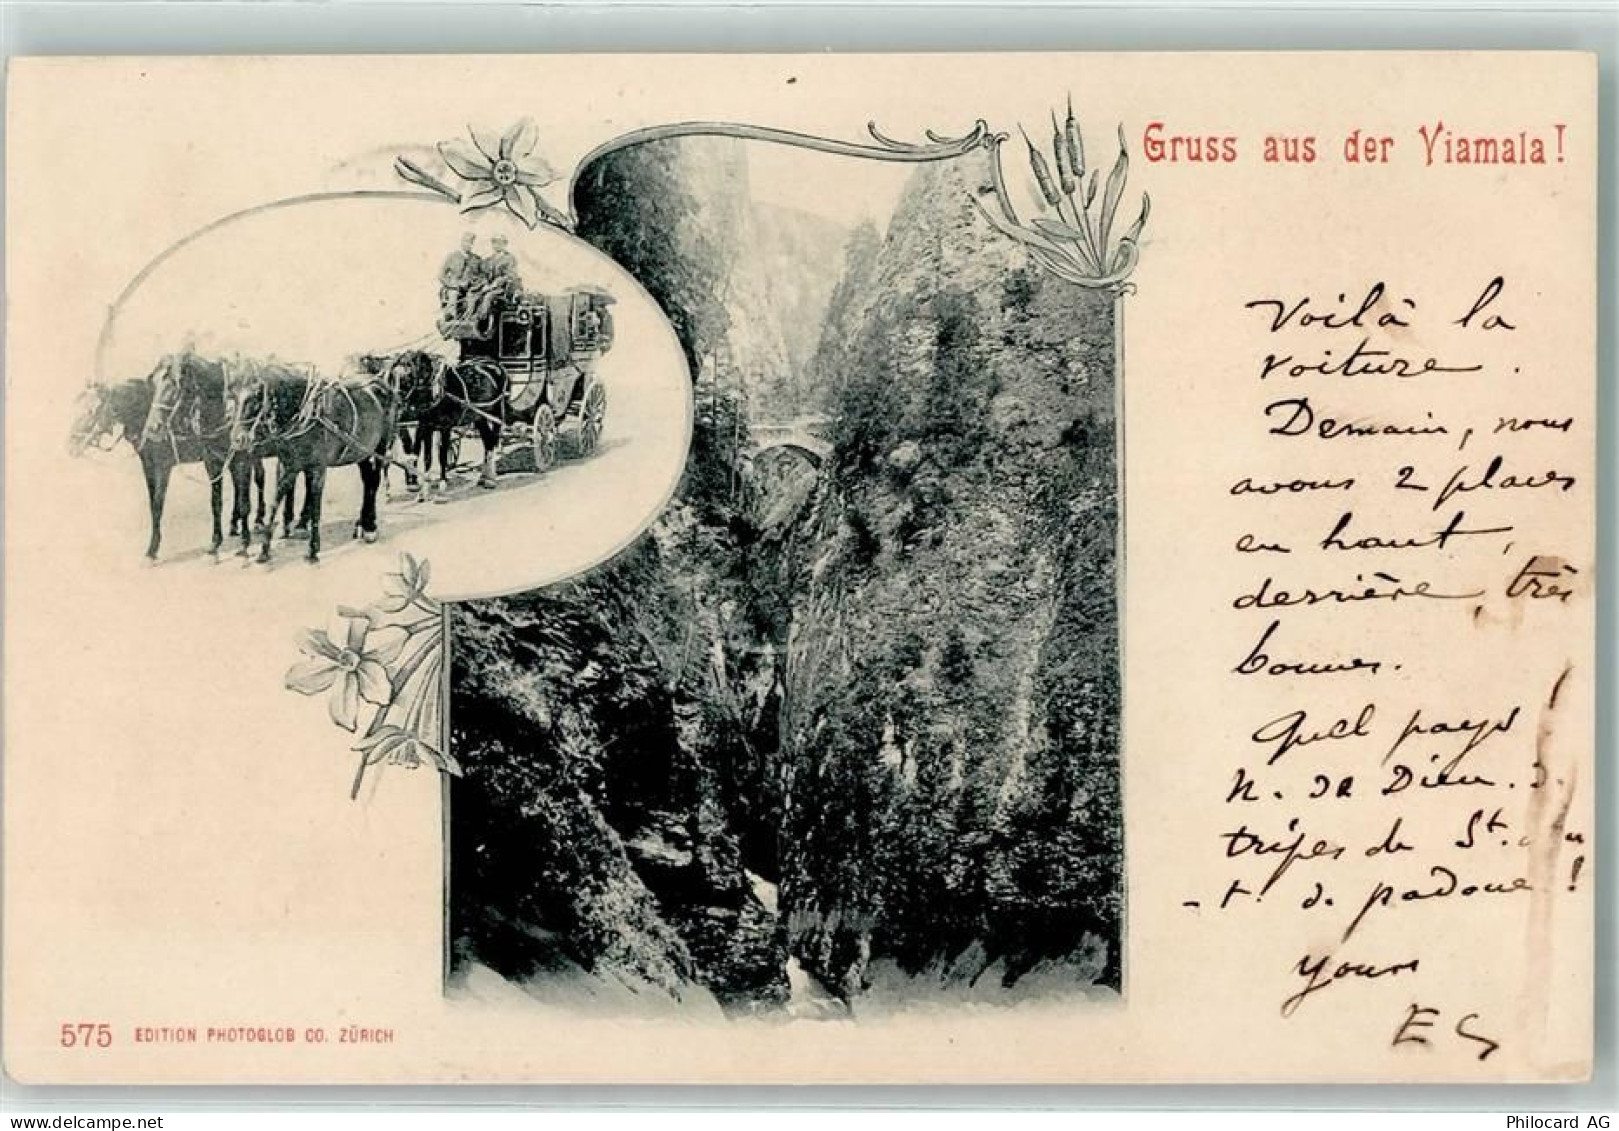 Gruss aus der Viamala!
Voilà la
voiture.
Demain, nous
avons 2 places
en haut,
derrière, très
bonnes.
Quel pays
N. de Dieu. d.
tripes de St.
-t. d. padoue!
Yours
E G
575 EDITION PHOTOGLOB CO. ZÜRICH
Philocard AG